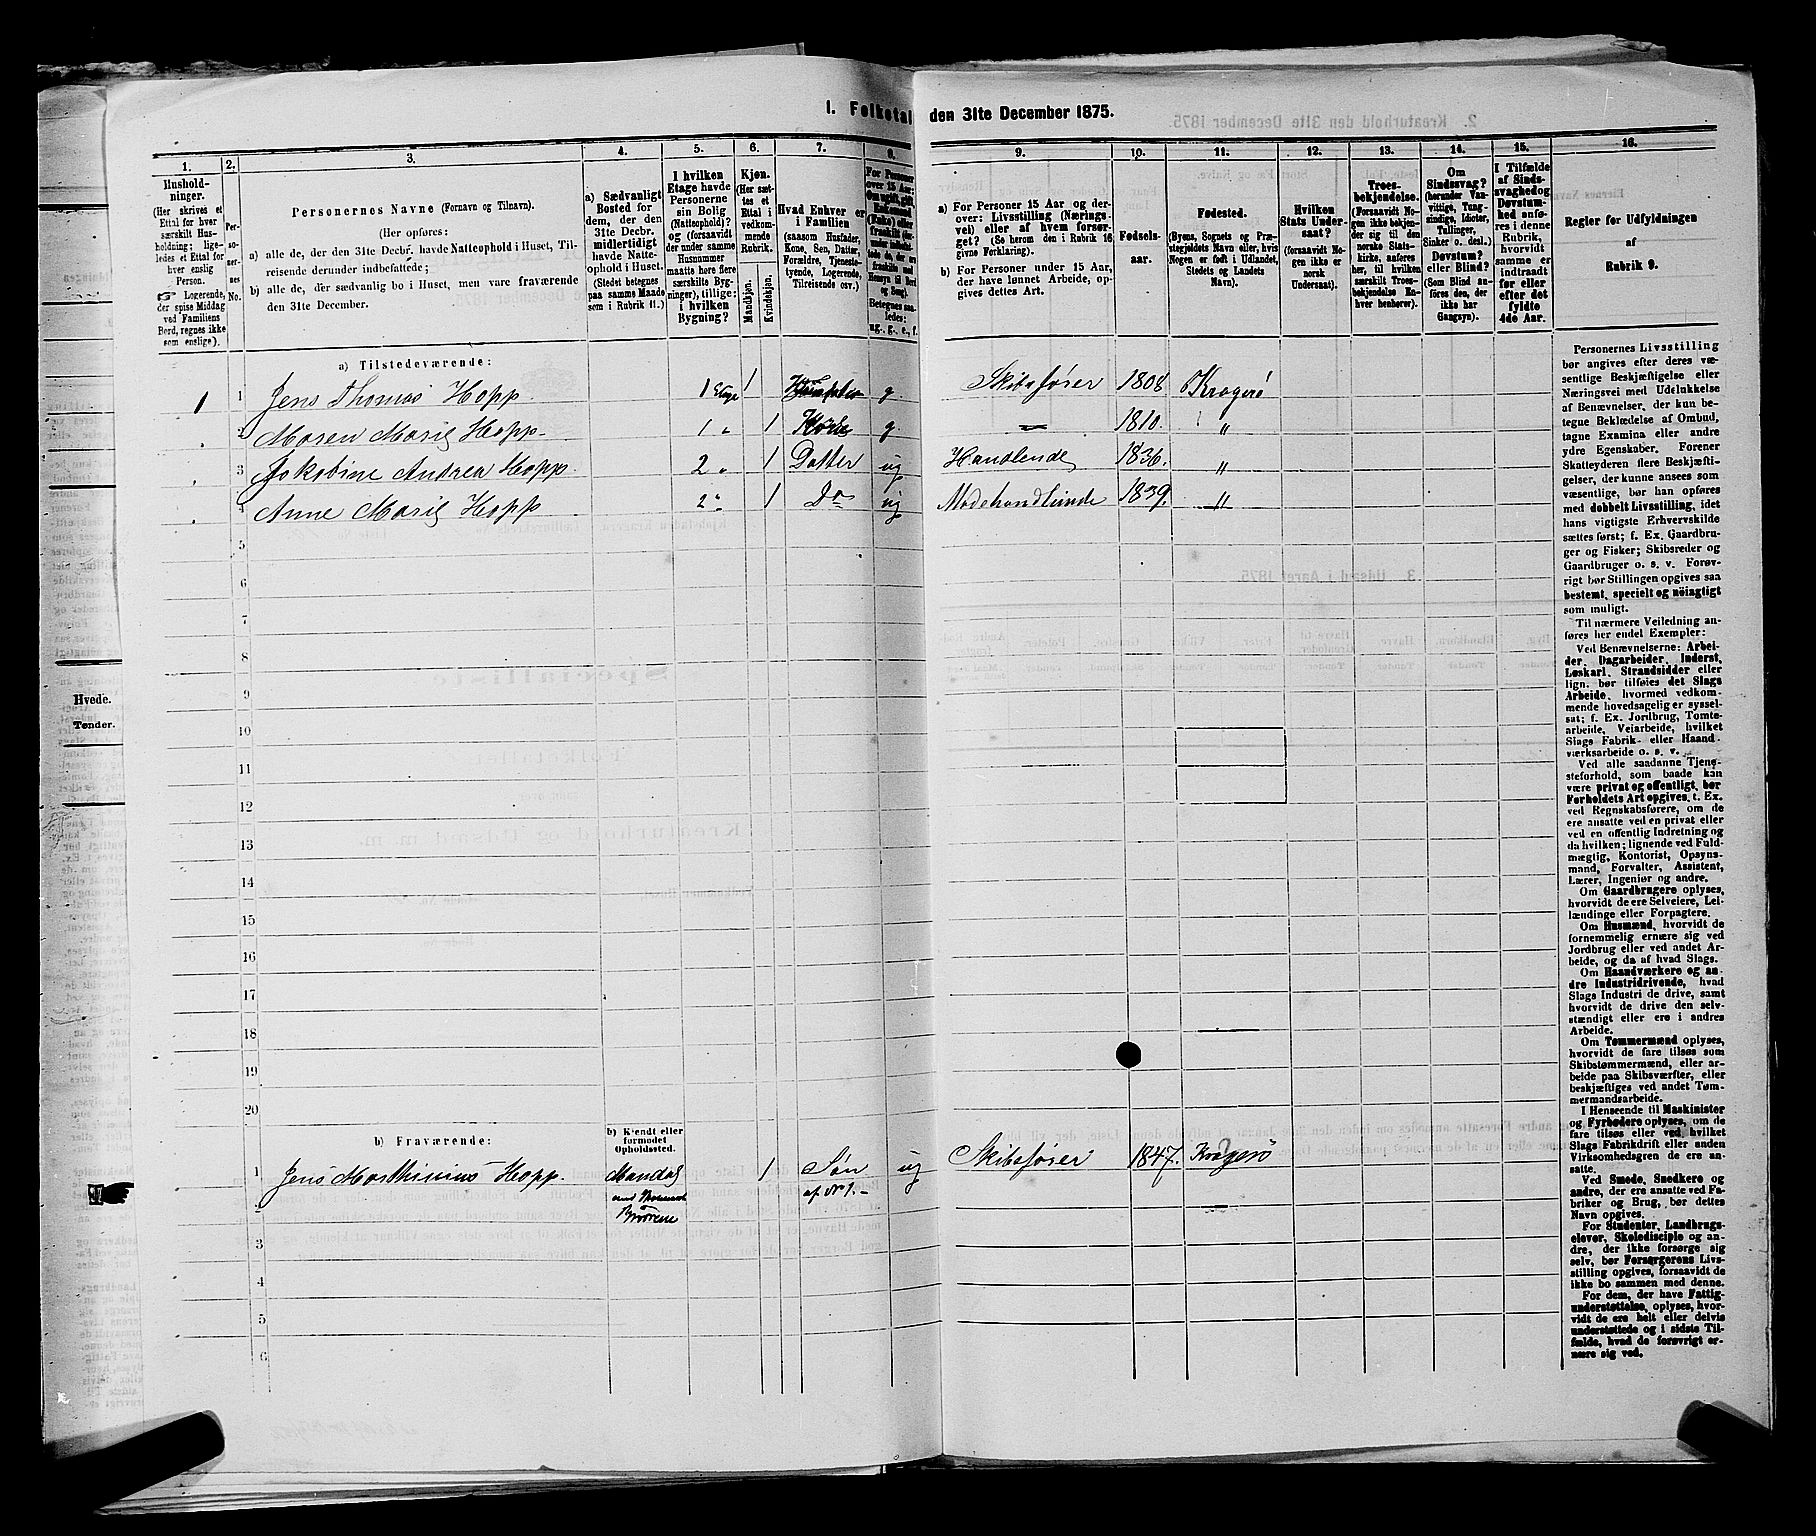 1. Folketal den 31te December 1875.
1. 2. 3. 4. 5. 6. 7. 8. 9. 10. 11. 12. 13. 14. 15. 16.
Husholdninger.
(Her skrives et
Ettal for hver
særskilt Husholdning;
ligeledes et Ettal for
hver enslig
Person.
☞ Logerende,
der spise Middag
ved Familiens
Bord, regnes ikke
som enslige).
Personernes No.
Personernes Navne (Fornavn og Tilnavn).
(Her opføres:
a) alle de, der den 31te Decbr. havde Natteophold i Huset, Tilreisende derunder indbefattede;
b) alle de, der sædvanlig bo i Huset, men vare fraværende
den 31te December.
a) Sædvanligt
Bosted for
dem, der den
31te Decbr.
midlertidigt
havde Natteophold i Huset.
(Stedet betegnes
paa samme Maade
som i Rubrik 11.)
I hvilken
Etage havde
Personerne
sin Bolig
(Natteophold)?
og (forsaavidt
der under samme
Husnummer
maatte høre flere
særskilte Bygninger), tillige:
i hvilken
Bygning?
Kjøn.
(Her sættes et
Ettal i
vedkommende
Rubrik.
Mandkjøn.
Kvindekjøn.
Hvad Enhver er
i Familien
(saasom Husfader,
Kone, Søn, Datter,
Forældre, Tjenestetyende, Logerende,
Tilreisende osv.)
For Personer
over 15 Aar:
ug., g., e., f.
a) For Personer 15 Aar og derover: Livsstilling (Næringsvei) eller af hvem forsørget? (Se herom den i Rubrik 16
givne Forklaring).
b) For Personer under 15 Aar,
der have lønnet Arbeide, opgives dettes Art.
Fødselsaar.
Fødested.
(Byens, Sognets og Præstegjeldets Navn eller, hvis
Nogen er født i Udlandet,
Stedets og Landets
Navn).
Hvilken
Stats Undersaat?
(forsaavidt Nogen ikke er
norsk
Undersaat).
Troesbekjendelse.
(Forsaavidt Nogen ikke bekjender sig til den
norske Statskirke, anføres
her, til hvilken
særskilt Troesbekjendelse Enhver henhører).
Om
Sindssvag?
(herunder Vanvittige, Tungsindige, Idioter,
Tullinger,
Sinker o. desl.)
Døvstum?
eller Blind?
(Som Blind anføres den, der
ikke har
Gangsyn).
I Tilfælde
af Sindssvaghed og
Døvstumhed anføres i denne
Rubrik,
hvorvidt
samme er
indtraadt
før eller
efter det
fyldte
4de Aar.
Regler for Udfyldningen
af
Rubrik 9.
a) Tilstedeværende:
1 1 Jens Thomas Hopp 1 Etage 1 g Skibsfører 1808 Kragerø
2 Maren Marie Hopp 1 " 1 Kone g 1810. "
3 Jakobine Andrea Hopp 2 " 1 Datter ug Handlende 1836. "
4 Anne Marie Hopp 2 " 1 Do ug Modehandlende 1839. "
5
6
7
8
9
10
11
12
13
14
15
16
17
18
19
20
b) Fraværende:
b) Kjendt eller
formodet
Opholdssted.
1 Jens Marthinius Hopp Mandal 1 Søn ug Skibsfører 1847. Kragerø
af No 1.
2
3
4
5
6
Personernes Livsstilling
bør angives efter deres væsentlige Beskjæftigelse eller
Næringsvei med Udelukkelse
af Benævnelser, der kun betegne Beklædelse af Ombud,
tagne Examina eller andre
ydre Egenskaber. Forener
Skatteyderen flere Beskjæftigelser, der kunne ansees som
væsentlige, bør han opføres
med dobbelt Livsstilling, idet
hans vigtigste Erhvervskilde
sættes først; f. Ex. Gaardbruger og Fisker; Skibsreder og
Gaardbruger o. s. v. Forøvrigt bør Stillingen opgives saa
bestemt, specielt og nøiagtigt
som muligt.
Til nærmere Veiledning anføres her endel Exempler:
Ved Benævnelserne: Arbeider, Dagarbeider, Inderst,
Løskarl, Strandsidder eller
lign. bør tilføies det Slags
Arbeide, hvormed vedkommende hovedsagelig er sysselsat; f. Ex. Jordbrug, Tomtearbeide, Veiarbeide, hvilket
Slags Fabrik- eller Haandværksarbeide o. s. v.
Ved alle saadanne Tjenesteforhold, som baade kan
være privat og offentligt, bør
Forholdets Art opgives, t. Ex.
ved Regnskabsførere, om de
ere ansatte ved en privat eller
ved en offentlig Indretning og
da hvilken; lignende ved Fuldmægtig, Kontorist, Opsynsmand, Forvalter, Assistent,
Lærer, Ingeniør og andre.
Om Gaardbrugere oplyses,
hvorvidt de ere Selveiere, Leilændinge eller Forpagtere.
Om Husmænd, hvorvidt de
fornemmelig ernære sig ved
Jordbrug eller ved andet Arbeide, og da af hvad Slags.
Om Haandværkere og andre Industridrivende, hvad
Slags Industri de drive, samt
hvorvidt de drive den selvstændigt eller ere i andres
Arbeide.
Om Tømmermænd oplyses,
hvorvidt de fare tilsøs som
Skibstømmermænd, eller arbeide paa Skibsværfter, eller
beskjæftiges ved andet Tømmermandsarbeide.
I Henseende til Maskinister
og Fyrbødere oplyses, om de
fare tilsøs eller ved hvilket
Slags Fabrikdrift eller anden
Virksomhedsgren de ere ansatte.
Ved Smede, Snedkere og
andre, der ere ansatte ved Fabriker og Brug, bør dettes
Navn opgives.
For Studenter, Landbrugselever, Skoledisciple og andre, der ikke forsørge sig
selv, bør Forsørgerens Livsstilling opgives, forsaavidt de
ikke bo sammen med denne.
For dem, der have Fattigunderstøttelse, oplyses, hvorvidt de ere helt eller delvis
understøttede og i sidste Tilfælde, hvad de forøvrigt ernære sig ved.
Hvede.
Tønder.